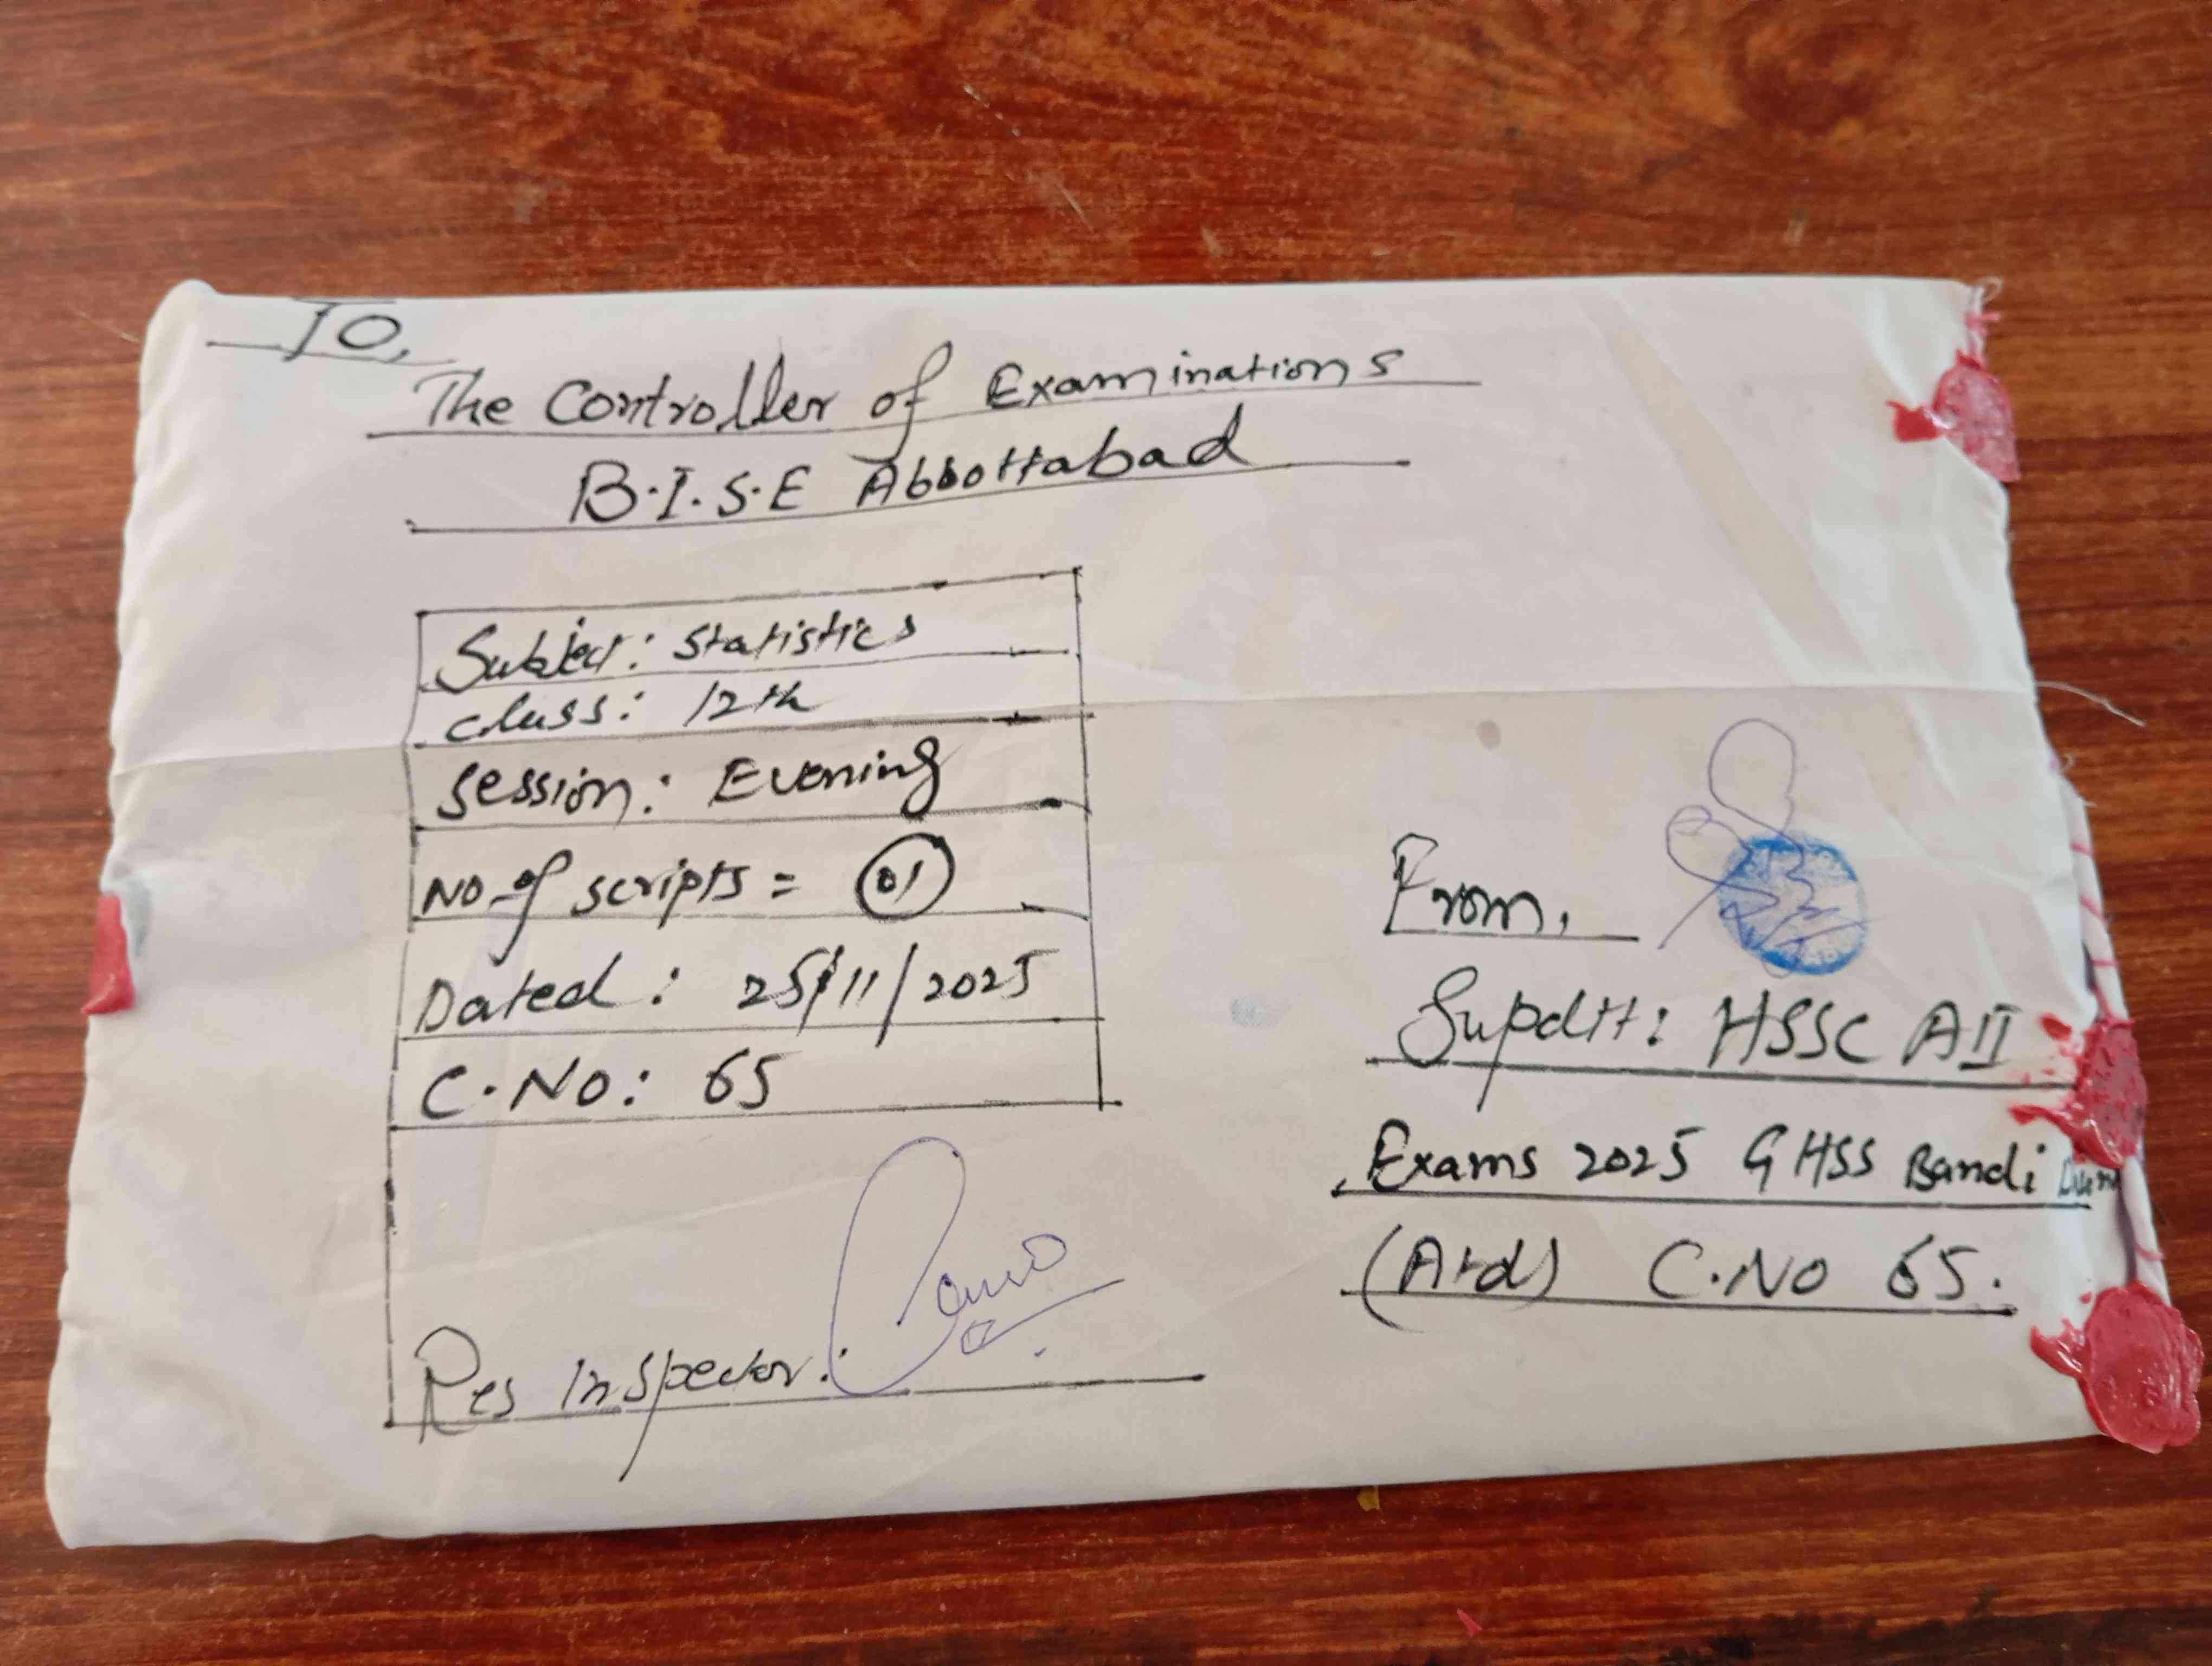 TO,
The Controller of Examinations
B.I.S.E Abbottabad
Subject: Statistics
class: 12th
Session: Evening
NO of scripts = 01
Dated: 25/11/2025
C.NO: 65
Res inspector:
From,
Supdtt: HSSC AII
Exams 2025 GHSS Bandi
(Atd) C.NO 65.